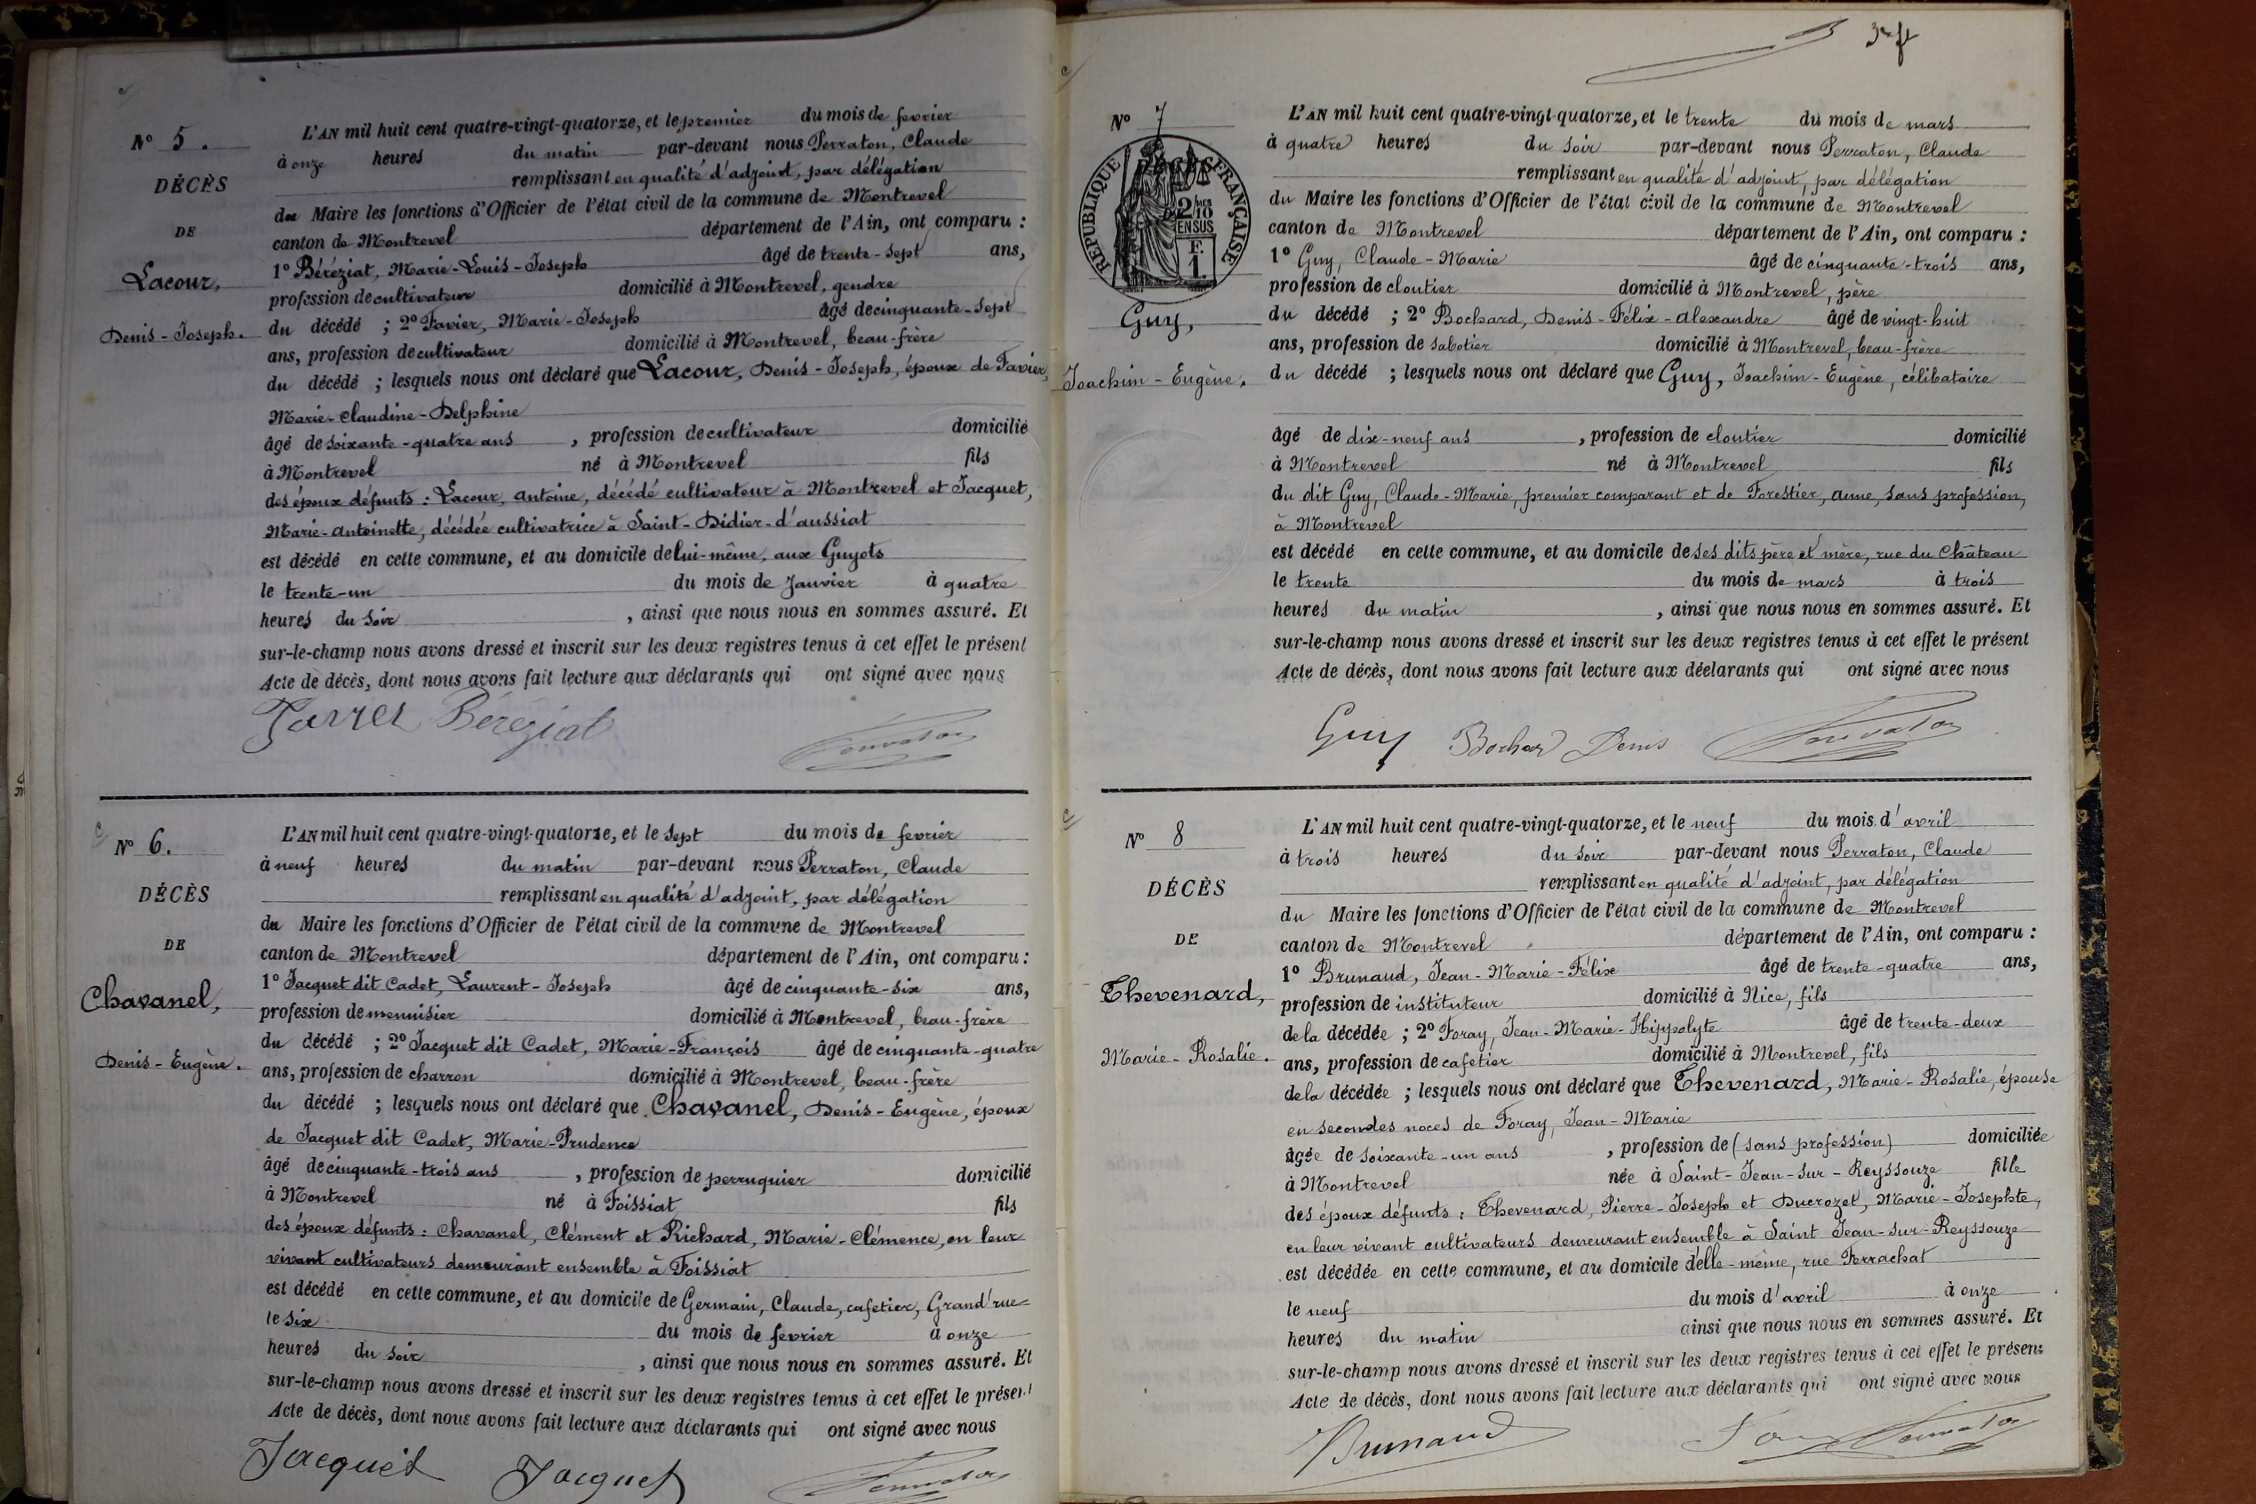 N° 5.
DÉCÈS
DE
Lacour,
Denis-Joseph.
L'AN mil huit cent quatre-vingt-quatorze, et le premier du mois de fevrier
à onze heures du matin par-devant nous Perraton, Claude
remplissant en qualité d'adjoint, par délégation
du Maire les fonctions d'Officier de l'état civil de la commune de Montrevel
canton de Montrevel département de l'Ain, ont comparu :
1° Béréziat, Marie-Louis-Joseph âgé de trente-sept ans,
profession de cultivateur domicilié à Montrevel, gendre
du décédé ; 2° Favier, Marie-Joseph âgé de cinquante-sept
ans, profession de cultivateur domicilié à Montrevel, beau-frère
du décédé ; lesquels nous ont déclaré que Lacour, Denis-Joseph, époux de Favier,
Marie-Claudine-Delphine
âgé de soixante-quatre ans , profession de cultivateur domicilié
à Montrevel né à Montrevel fils
des époux défunts : Lacour, Antoine, décédé cultivateur à Montrevel et Jacquet,
Marie-Antoinette, décédée cultivatrice à Saint-Didier-d'aussiat
est décédé en cette commune, et au domicile de lui-même, aux Guyots
le trente-un du mois de Janvier à quatre
heures du soir , ainsi que nous nous en sommes assuré. Et
sur-le-champ nous avons dressé et inscrit sur les deux registres tenus à cet effet le présent
Acte de décès, dont nous avons fait lecture aux déclarants qui ont signé avec nous
Béréziat
N° 6.
DÉCÈS
DE
Chavanel,
Denis-Eugène.
L'AN mil huit cent quatre-vingt-quatorze, et le sept du mois de fevrier
à neuf heures du matin par-devant nous Perraton, Claude
remplissant en qualité d'adjoint, par délégation
du Maire les fonctions d'Officier de l'état civil de la commune de Montrevel
canton de Montrevel département de l'Ain, ont comparu :
1° Jacquet dit Cadet, Laurent-Joseph âgé de cinquante-six ans,
profession de menuisier domicilié à Montrevel, beau-frère
du décédé ; 2° Jacquet dit Cadet, Marie-François âgé de cinquante-quatre
ans, profession de charron domicilié à Montrevel, beau-frère
du décédé ; lesquels nous ont déclaré que Chavanel, Denis-Eugène, époux
de Jacquet dit Cadet, Marie-Prudence
âgé de cinquante-trois ans , profession de perruquier domicilié
à Montrevel né à Foissiat fils
des époux défunts : Chavanel, Clément et Richard, Marie-Clémence, en leur
vivant cultivateurs demeurant ensemble à Foissiat
est décédé en cette commune, et au domicile de Germain, Claude, cafetier, Grand'rue
le six du mois de fevrier à onze
heures du soir , ainsi que nous nous en sommes assuré. Et
sur-le-champ nous avons dressé et inscrit sur les deux registres tenus à cet effet le présent
Acte de décès, dont nous avons fait lecture aux déclarants qui ont signé avec nous
Jacquet Jacquet
N° 7
RÉPUBLIQUE FRANÇAISE
2/10 EN SUS
Guy,
Joachim-Eugène.
L'AN mil huit cent quatre-vingt-quatorze, et le trente du mois de mars
à quatre heures du soir par-devant nous Perraton, Claude
remplissant en qualité d'adjoint, par délégation
du Maire les fonctions d'Officier de l'état civil de la commune de Montrevel
canton de Montrevel département de l'Ain, ont comparu :
1° Guy, Claude-Marie âgé de cinquante-trois ans,
profession de cloutier domicilié à Montrevel, père
du décédé ; 2° Bochard, Denis-Félix-Alexandre âgé de vingt-huit
ans, profession de sabotier domicilié à Montrevel, beau-frère
du décédé ; lesquels nous ont déclaré que Guy, Joachim-Eugène, célibataire
âgé de dix-neuf ans , profession de cloutier domicilié
à Montrevel né à Montrevel fils
du dit Guy, Claude-Marie, premier comparant et de Forestier, anne, sans profession,
à Montrevel
est décédé en cette commune, et au domicile de ses dits père et mère, rue du Château
le trente du mois de mars à trois
heures du matin , ainsi que nous nous en sommes assuré. Et
sur-le-champ nous avons dressé et inscrit sur les deux registres tenus à cet effet le présent
Acte de décès, dont nous avons fait lecture aux déclarants qui ont signé avec nous
Guy Bochard Denis
N° 8
DÉCÈS
DE
Thevenard,
Marie-Rosalie.
L'AN mil huit cent quatre-vingt-quatorze, et le neuf du mois d'avril
à trois heures du soir par-devant nous Perraton, Claude
remplissant en qualité d'adjoint, par délégation
du Maire les fonctions d'Officier de l'état civil de la commune de Montrevel
canton de Montrevel département de l'Ain, ont comparu :
1° Brunaud, Jean-Marie-Félix âgé de trente-quatre ans,
profession de instituteur domicilié à Nice, fils
de la décédée ; 2° Foray, Jean-Marie-Hippolyte âgé de trente-deux
ans, profession de cafetier domicilié à Montrevel, fils
de la décédée ; lesquels nous ont déclaré que Thevenard, Marie-Rosalie, épouse
en secondes noces de Foray, Jean-Marie
âgée de soixante-un ans , profession de (sans profession) domiciliée
à Montrevel née à Saint-Jean-sur-Reyssouze fille
des époux défunts : Thevenard, Pierre-Joseph et Ducrozet, Marie-Josephte,
en leur vivant cultivateurs demeurant ensemble à Saint Jean-sur-Reyssouze
est décédée en cette commune, et au domicile d'elle-même, rue Ferrachat
le neuf du mois d'avril à onze
heures du matin ainsi que nous nous en sommes assuré. Et
sur-le-champ nous avons dressé et inscrit sur les deux registres tenus à cet effet le présent
Acte de décès, dont nous avons fait lecture aux déclarants qui ont signé avec nous
Brunaud